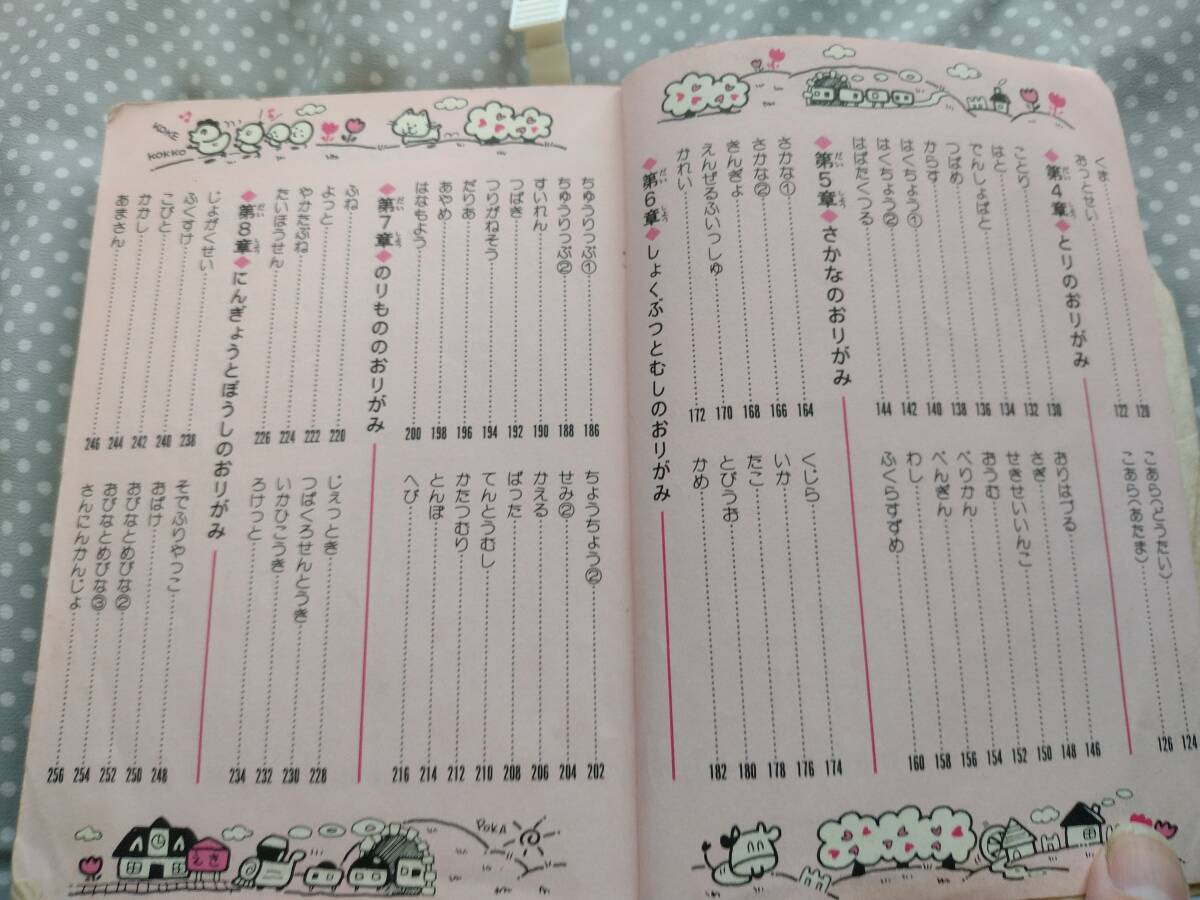 くま 120
おっとせい 122
こあら(どうたい) 124
こあら(あたま) 126
◆第4章◆とりのおりがみ
だい しょう
ことり 130
はと 132
でんしょばと 134
つばめ 136
からす 138
はくちょう① 140
はくちょう② 142
はばたくつる 144
おりはづる 146
さぎ 148
せきせいいんこ 150
おうむ 152
ぺりかん 154
ぺんぎん 156
わし 158
ふくらすずめ 160
◆第5章◆さかなのおりがみ
だい しょう
さかな① 164
さかな② 166
きんぎょ 168
えんぜるふいっしゅ 170
かれい 172
くじら 174
いか 176
たこ 178
とびうお 180
かめ 182
◆第6章◆しょくぶつとむしのおりがみ
だい しょう
KOKE
KOKKO
ちゅうりっぷ① 186
ちゅうりっぷ② 188
すいれん 190
つばき 192
つりがねそう 194
だりあ 196
あやめ 198
はなもよう 200
ちょうちょう② 202
せみ② 204
かえる 206
ばった 208
てんとうむし 210
かたつむり 212
とんぼ 214
へび 216
◆第7章◆のりもののおりがみ
だい しょう
ふね 220
よっと 222
やかたぶね 224
たいほうせん 226
じぇっとき 228
つばくろせんとうき 230
いかひこうき 232
ろけっと 234
◆第8章◆にんぎょうとぼうしのおりがみ
だい しょう
じょがくせい 238
ふくすけ 240
こびと 242
かかし 244
あまさん 246
そでふりやっこ 248
おばけ 250
おびなとめびな② 252
おびなとめびな③ 254
さんにんかんじょ 256
えき
POKA